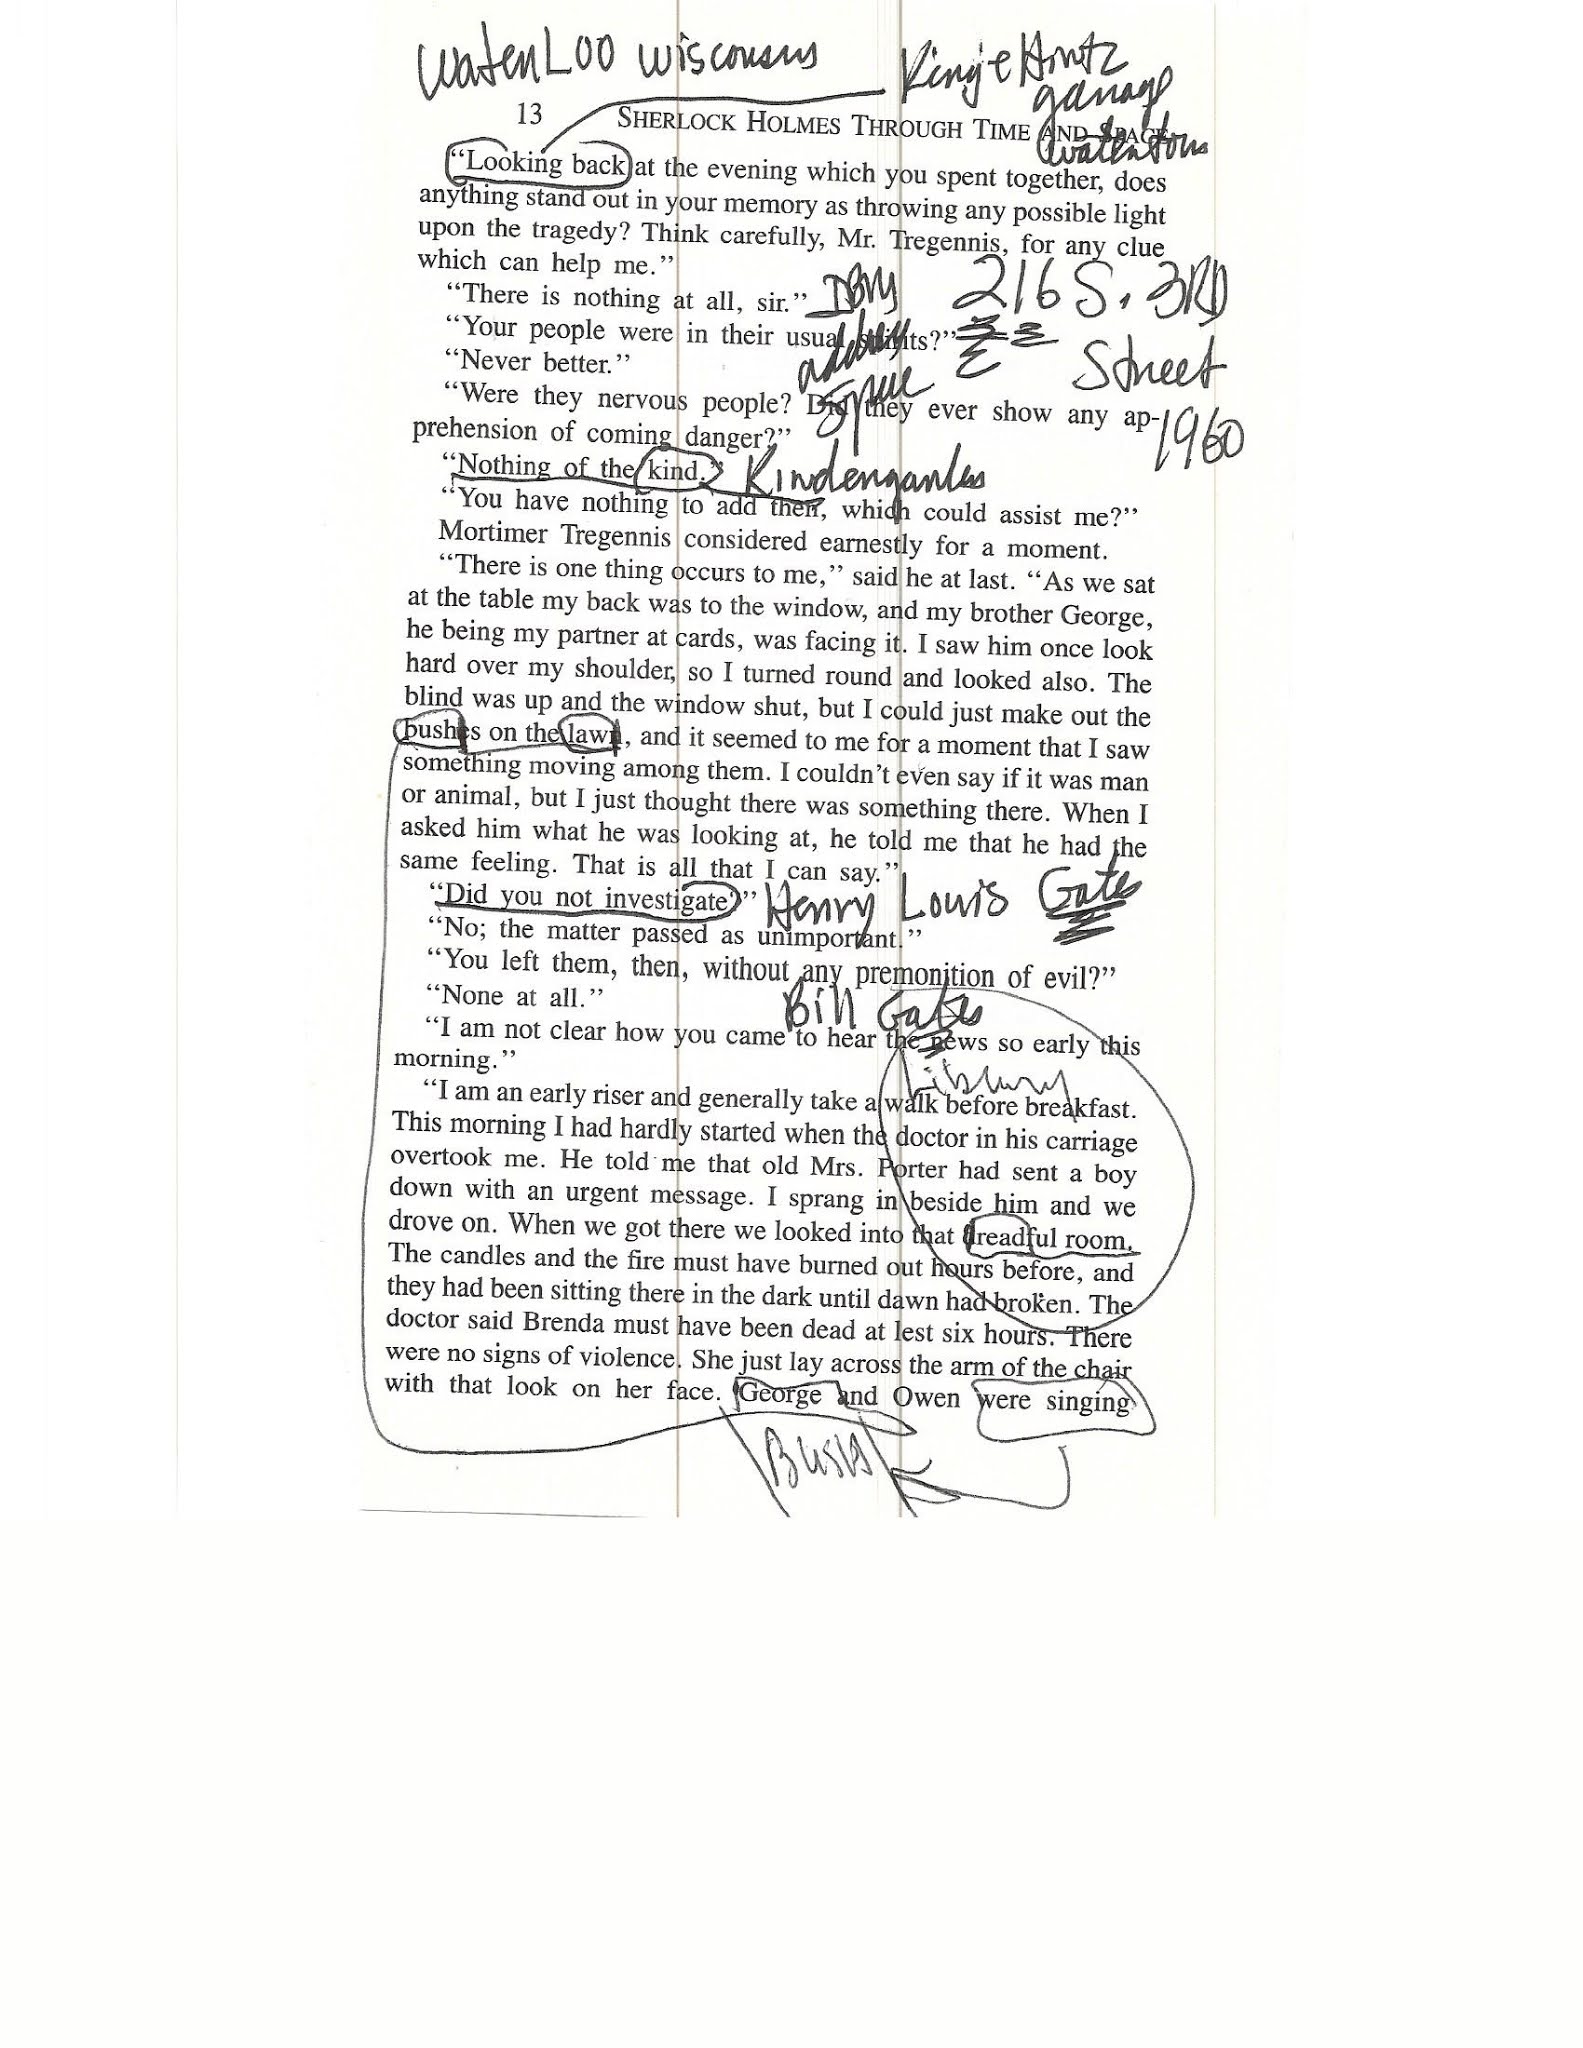 WatenLoo Wisconsin
garage
13 SHERLOCK HOLMES THROUGH TIME AND SPACE
Watertown
“Looking back at the evening which you spent together, does
anything stand out in your memory as throwing any possible light
upon the tragedy? Think carefully, Mr. Tregennis, for any clue
which can help me.”
216 S. 3RD
“There is nothing at all, sir.”
“Your people were in their usual spirits?”
Street
“Never better.”
“Were they nervous people? Did they ever show any ap-
1960
prehension of coming danger?”
“Nothing of the kind.” Kindengarten
“You have nothing to add then, which could assist me?”
Mortimer Tregennis considered earnestly for a moment.
“There is one thing occurs to me,” said he at last. “As we sat
at the table my back was to the window, and my brother George,
he being my partner at cards, was facing it. I saw him once look
hard over my shoulder, so I turned round and looked also. The
blind was up and the window shut, but I could just make out the
bushes on the lawn, and it seemed to me for a moment that I saw
something moving among them. I couldn’t even say if it was man
or animal, but I just thought there was something there. When I
asked him what he was looking at, he told me that he had the
same feeling. That is all that I can say.”
“Did you not investigate?” Henry Louis Gates
“No; the matter passed as unimportant.”
“You left them, then, without any premonition of evil?”
“None at all.”
Bill Gates
“I am not clear how you came to hear the news so early this
morning.”
Library
“I am an early riser and generally take a walk before breakfast.
This morning I had hardly started when the doctor in his carriage
overtook me. He told me that old Mrs. Porter had sent a boy
down with an urgent message. I sprang in beside him and we
drove on. When we got there we looked into that dreadful room.
The candles and the fire must have burned out hours before, and
they had been sitting there in the dark until dawn had broken. The
doctor said Brenda must have been dead at lest six hours. There
were no signs of violence. She just lay across the arm of the chair
with that look on her face. George and Owen were singing
Bush